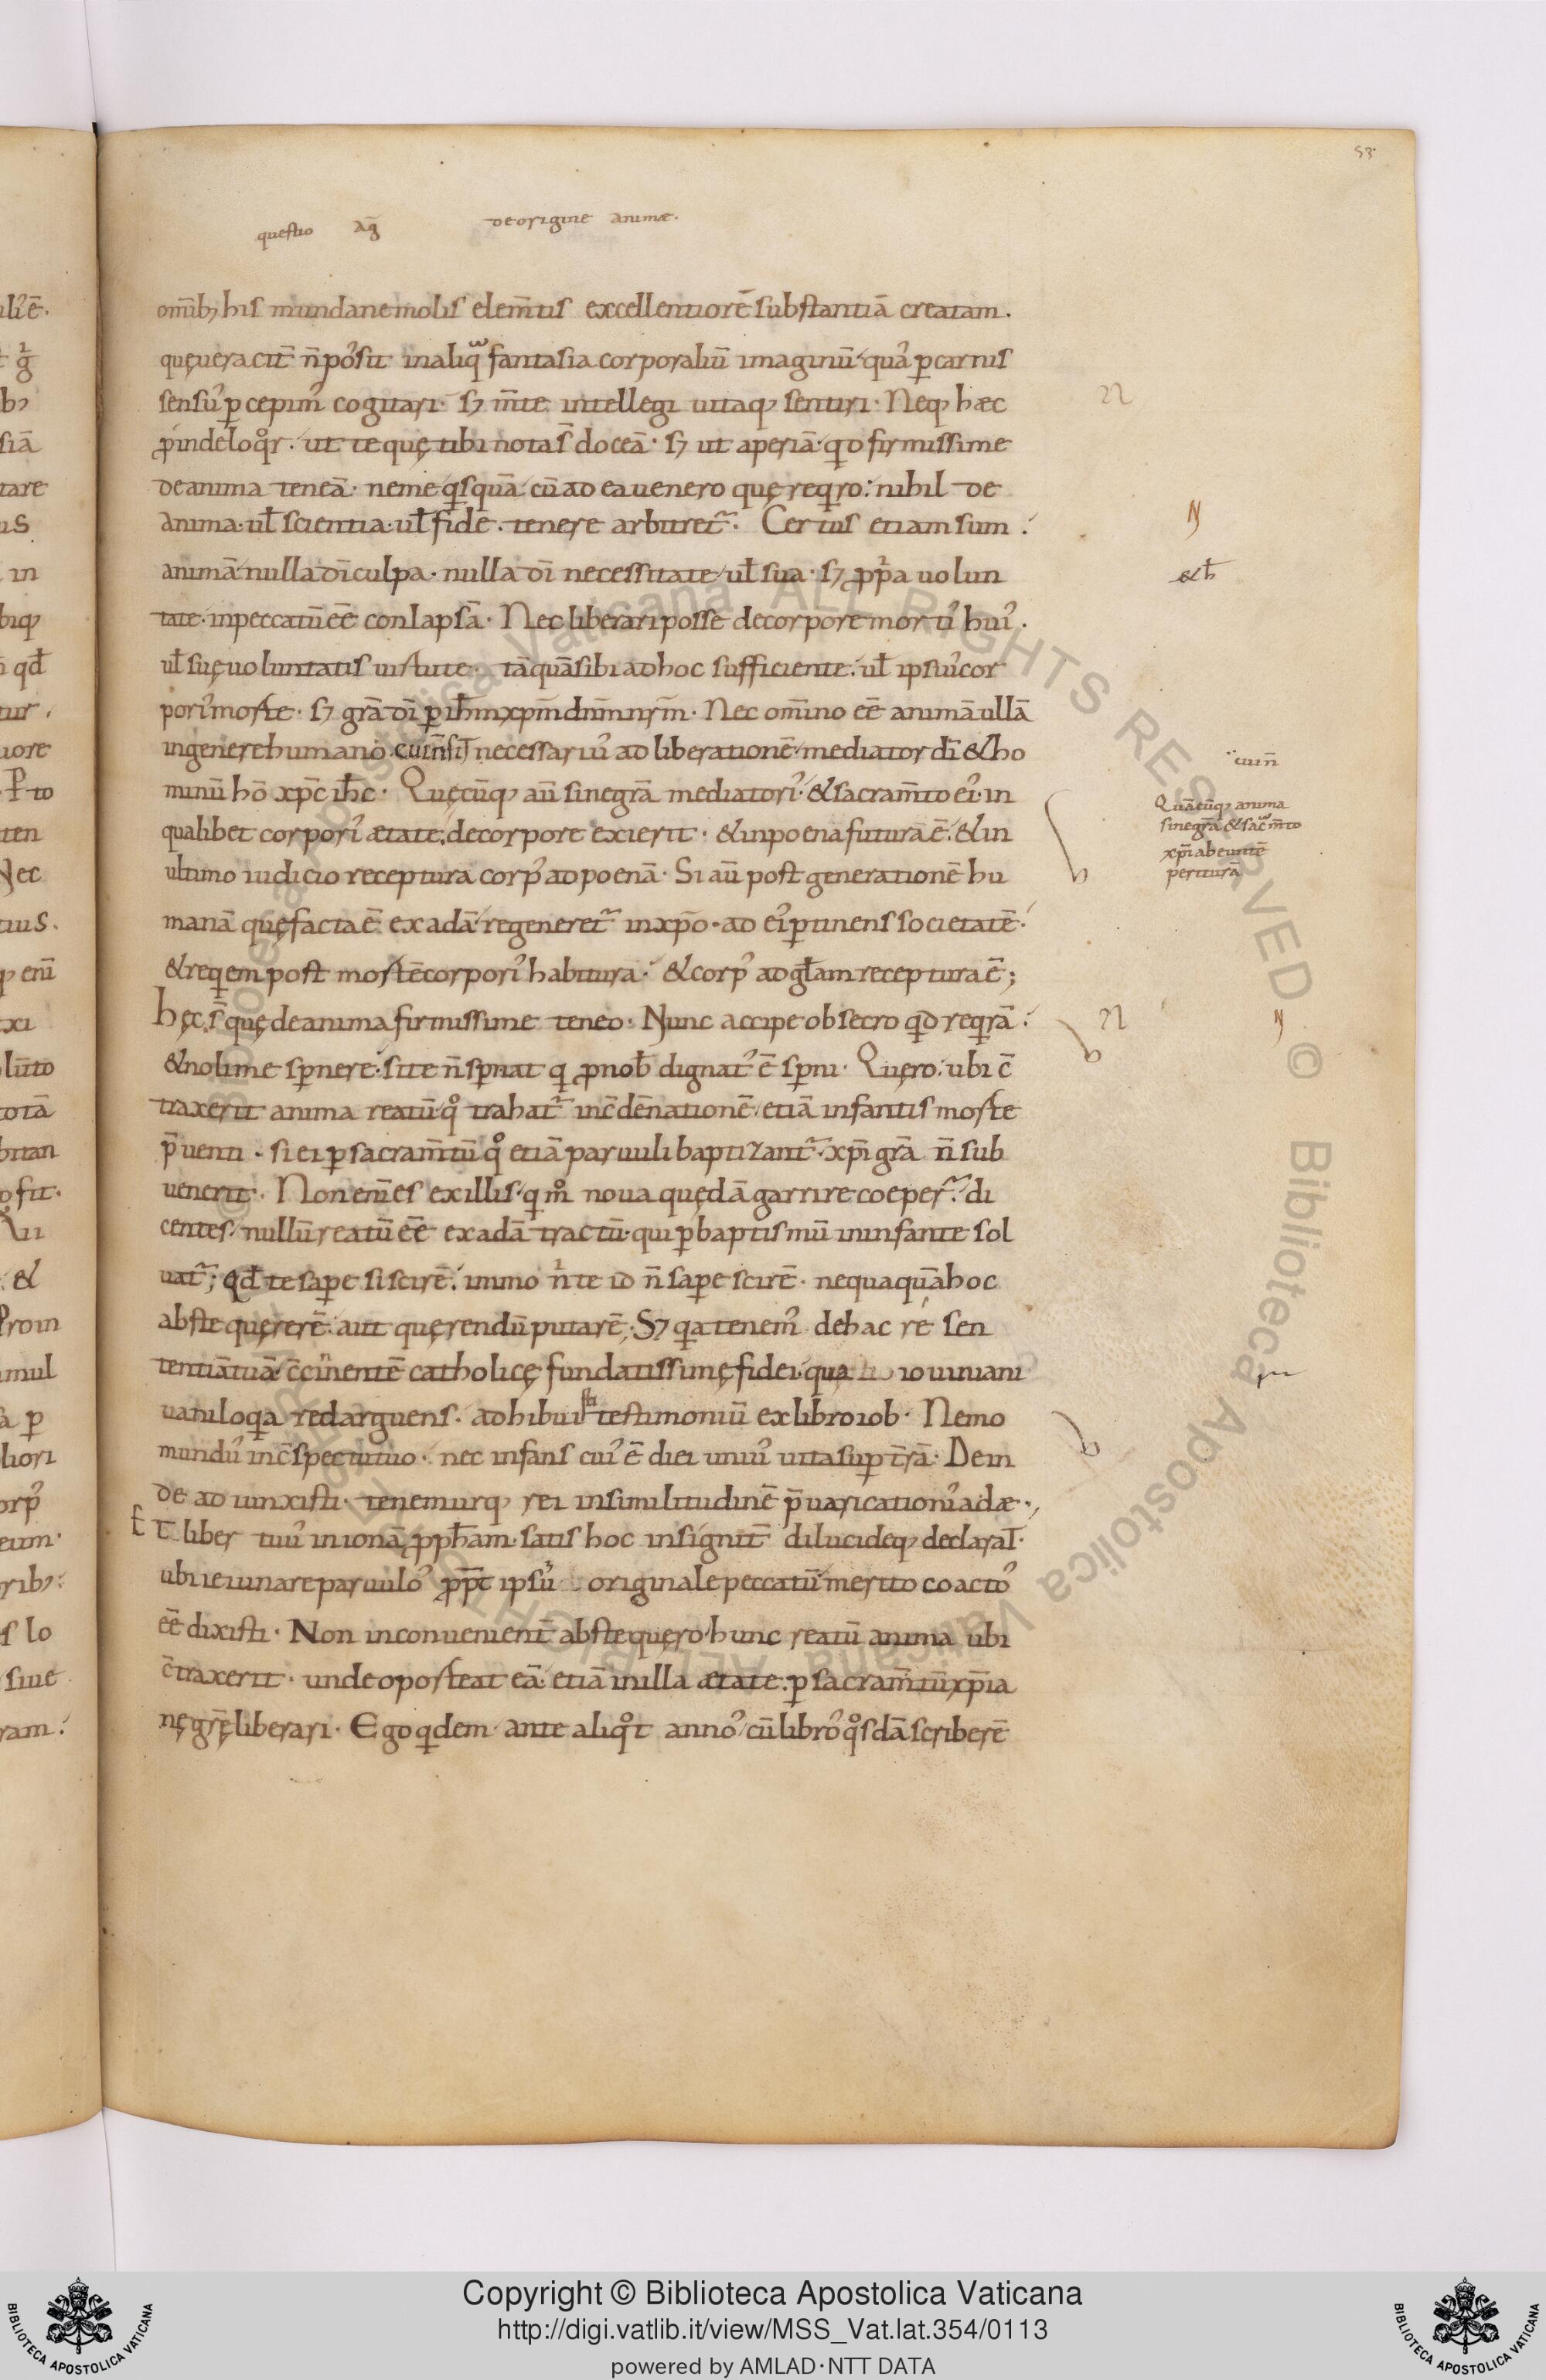 53.
questio aḡ de origine animæ.
om̄ib; his mundane molis elem̄tis excellentiorē substantiā creatam.
quę ueracit̄ n̄ pos̓it in aliqͣ fantasia corporaliū imaginū quas̓ p̱ carnis
sensus̓ p̱cepim̓ cogitari · s; m̄te intellegi uitaq; sentiri · Neq; hæc
ꝓinde loqͦr · ut te quę tibi nota s̄ doceā · s; ut aperiā qd firmissime
de anima teneā · ne me qͥsquā cū ad ea uenero quę reqͥro: nihil de
anima ul̄ scientia ul̄ fide tenere arbitret᷑ · Certus etiam sum
animā nulla dī culpa · nulla dī necessitate ul̄ sua · s; ꝓpͥa uolun
tate · in peccatū ēē conlapsā · Nec liberari posse de corpore mortis̓ hui̓ ·
ul̄ suę uoluntatis uirtute · tāquā sibi ad hoc sufficiente ul̄ ipsius̓ cor
poris̓ morte · s; grā dī p̱ ih̄m xp̄m dn̄m nr̄m · Nec om̄ino ēē animā ullā
in genere humano cui n̄ sit necessarius̓ ad liberationē mediator dī & ho
minū hō xp̄c ih̄c · Quęcūq; aū sine grā mediatoris̓ & sacram̄to ei̓ in
qualibet corporis̓ ætate de corpore exierit · & in poena futura ē & in
ultimo iudicio receptura corp̓ ad poenā · Si aū post generationē hu
manā quę facta ē ex adā regeneret᷑ in xp̄o · ad ei̓ p̱tinens societatē
& reqͥem post mortē corporis̓ habitura · & corp̓ ad gl̄am receptura ē;
hęc s̄ quę de anima firmissime teneo · Nunc accipe obsecro qͥd reqͥrā
& noli me sp̱nere · si te n̄ sp̱nat qͥ ꝓ nob̄ dignat̓ ē sp̱ni · Quęro ubi c̄
traxerit anima reatū qͦ trahat᷑ in c̄dēnationē etiā infantis morte
p̄uenti · si ei p̱ sacram̄tū qͦ etiā paruuli baptizant᷑ xp̄i grā n̄ sub
uenerit · Non eni̅ es ex illis qͥ mͦ noua quędā garrire coeper᷑ di
centes nullū reatū ēē ex adā tractū qui p̱ baptismū in infante sol
uat᷑; Qd̄ te sap̱e si scirē immo nͥ te id n̄ sap̱e scirē · nequaquā hoc
abs te quęrerē aut quęrendū putarē · S; qͥa tenem̓ de hac re sen
tentiā tuā c̄cinentē catholicę fundatissimę fidei qua iouiniani
uaniloqͥa redarguens · adhibuisti testimoniū ex libro iob · Nemo
mundus̓ in c̄spectu tuo · nec infans cui̓ ē diei unius̓ uita sup̱ t̄rā · Dein
de adiunxisti · tenemurq; rei in similitudinē p̄uaricationis̓ adæ ·
Et liber tuus̓ in ionā ꝓph̄am satis hoc insignit̄ dilucideq; declarat̄ ·
ubi ieiunare paruulos̓ ꝓpt̄ ipsū originale peccatū merito coactos̓
ēē dixisti · Non inconuenient̄ abs te quęro hunc reatū anima ubi
c̄traxerit · unde oporteat eā etiā in illa ætate p̱ sacram̄tū xp̄ia
nę gr̄ę liberari · Ego qͥdem ante aliqͦt annos̓ cū libros̓ qͦsdā scriberē
cui n̄
Quācūq; anima
sine grā & sac̄m̄to
xp̄i abeuntē
peritura
Copyright © Biblioteca Apostolica Vaticana
http://digi.vatlib.it/view/MSS_Vat.lat.354/0113
powered by AMLAD·NTT DATA
BIBLIOTECA APOSTOLICA VATICANA
BIBLIOTECA APOSTOLICA VATICANA